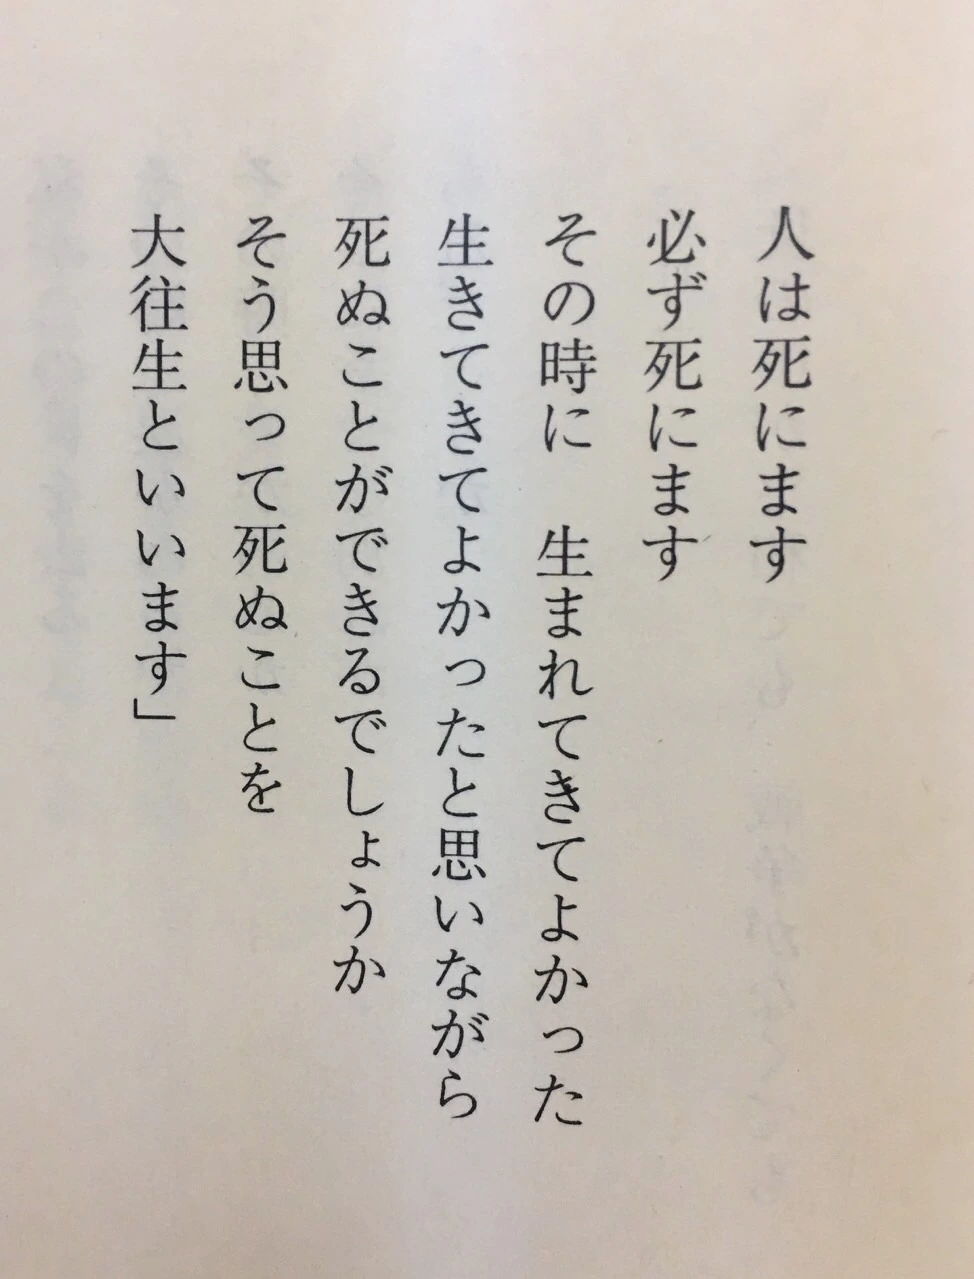 人は死にます
必ず死にます
その時に　生まれてきてよかった
生きてきてよかったと思いながら
死ぬことができるでしょうか
そう思って死ぬことを
大往生といいます」